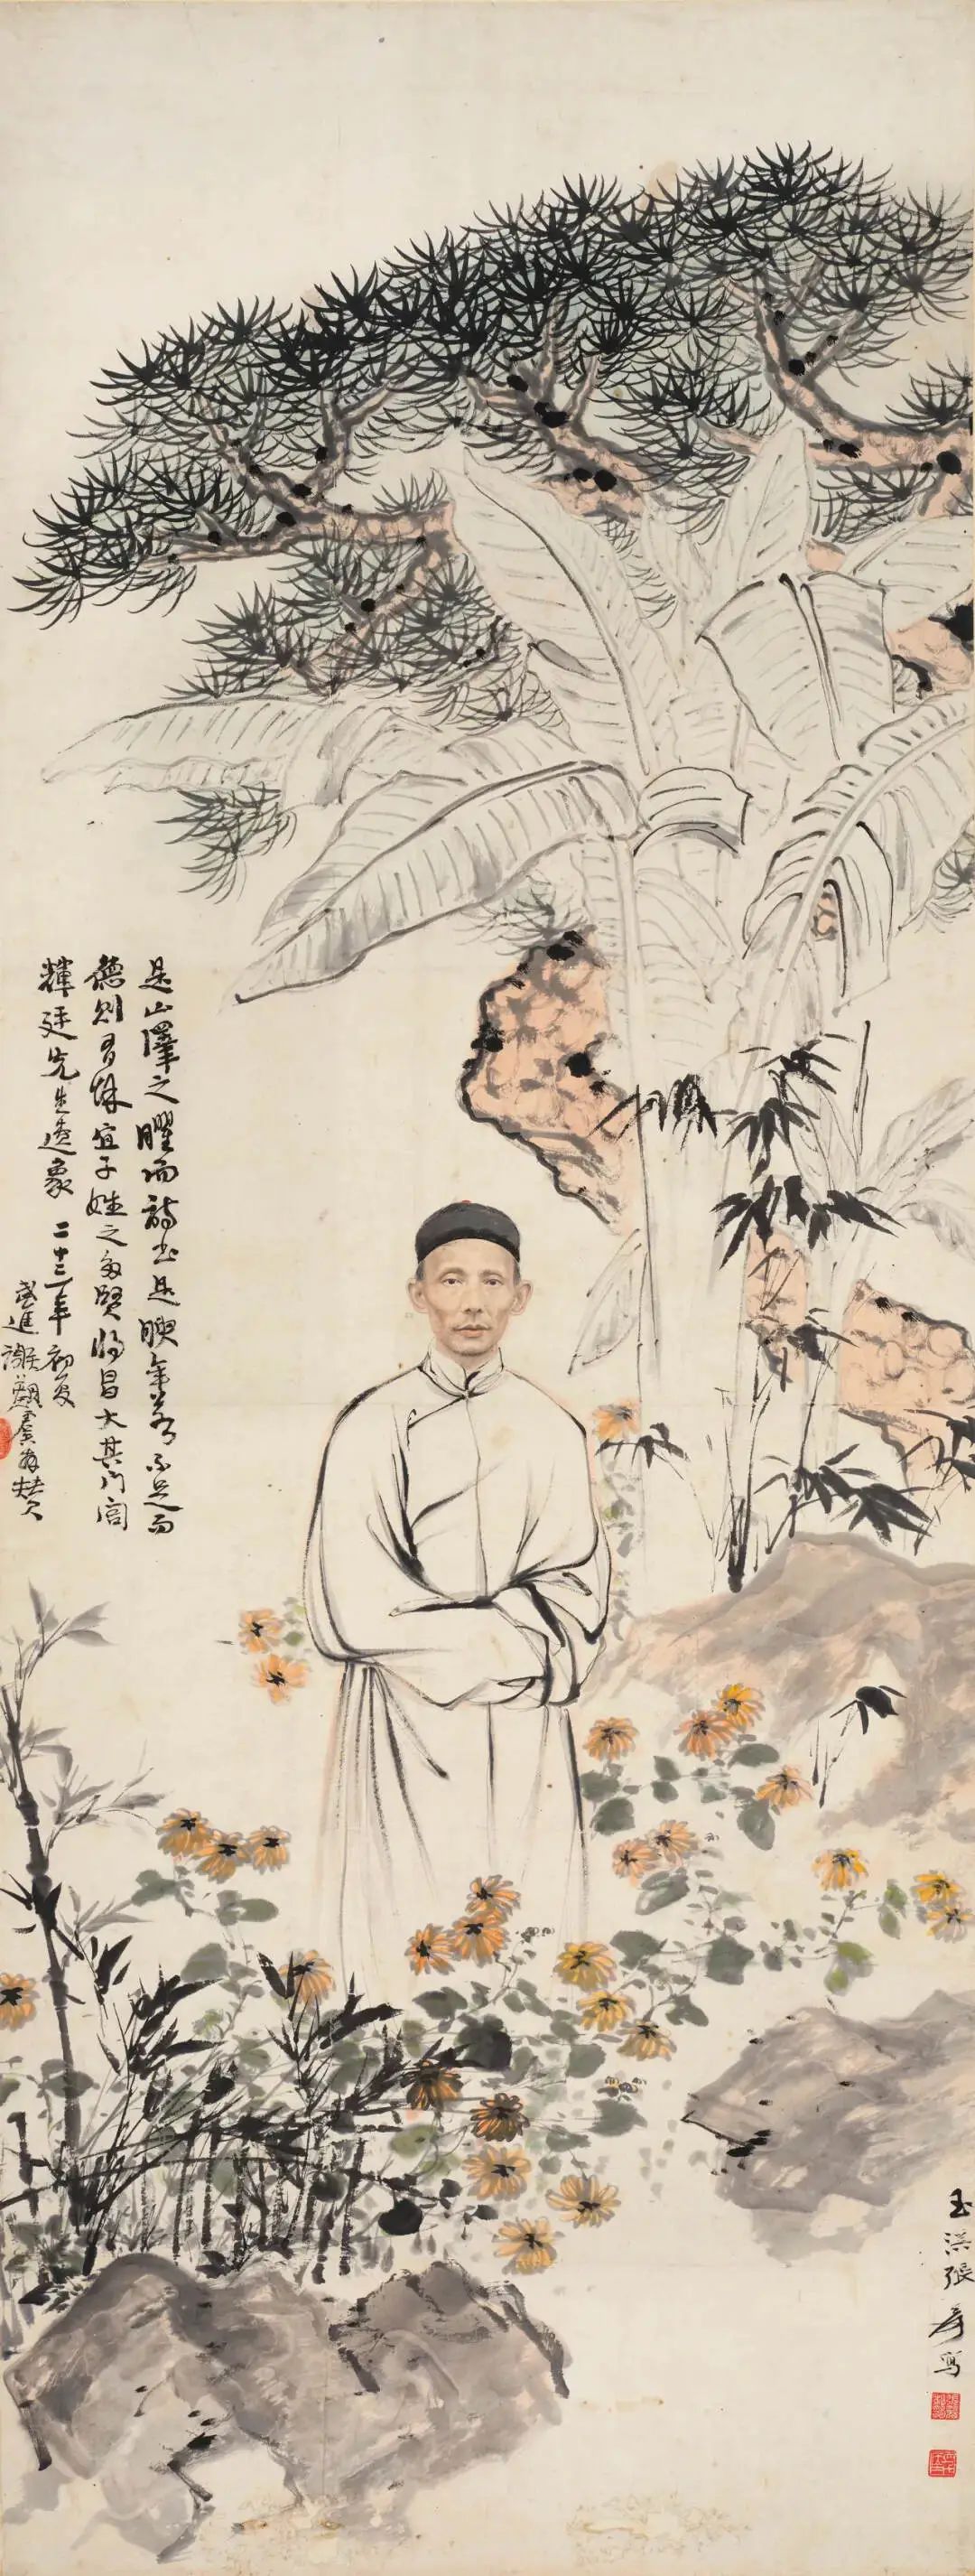 是山澤之臞而詩書是腴年若不足而
德則有餘宜子姓之多賢將昌大其門閭
輝廷先生遺象 二十三年初夏
武進謝覲虞
張爰寫